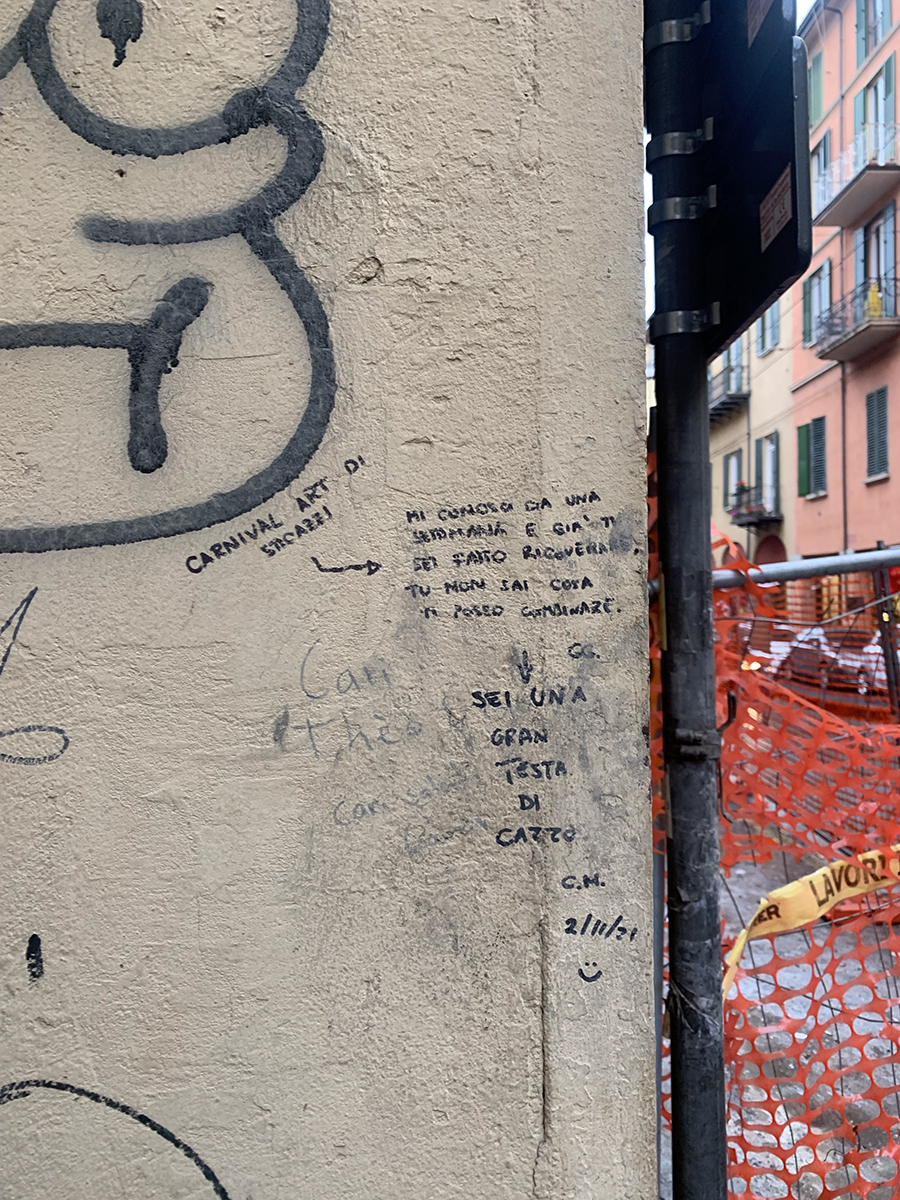 CARNIVAL ART DI
STOCAZZI
MI CONOSCI DA UNA
SETTIMANA E GIA' TI
SEI FATTO RICOVERARE.
TU NON SAI COSA
TI POSSO COMBINARE.
GG.
SEI UNA
GRAN
TESTA
DI
CAZZO
C.M.
2/11/21
Cari
Theo
Cari
LAVORI
ER